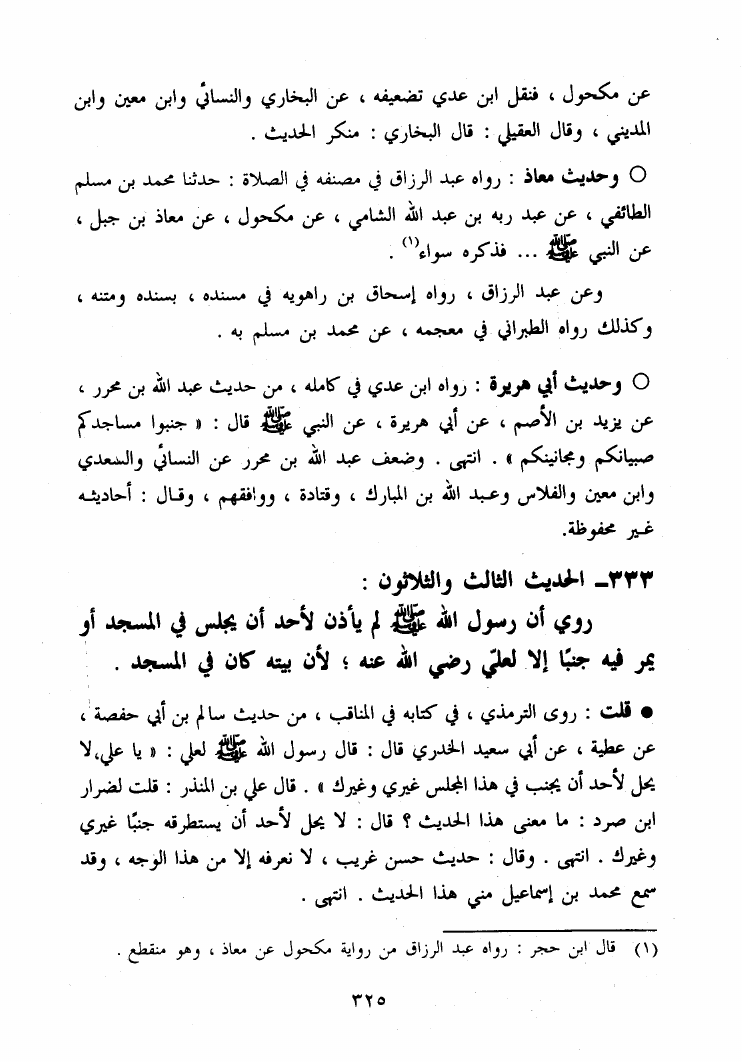 عن مكحول ، فنقل ابن عدي تضعيفه ، عن البخاري والنسائي وابن معين وابن
المديني ، وقال العقيلي : قال البخاري : منكر الحديث .
○ وحديث معاذ : رواه عبد الرزاق في مصنفه في الصلاة : حدثنا محمد بن مسلم
الطائفي ، عن عبد ربه بن عبد الله الشامي ، عن مكحول ، عن معاذ بن جبل ،
عن النبي ﷺ ... فذكره سواء(١) .
وعن عبد الرزاق ، رواه إسحاق بن راهويه في مسنده ، بسنده ومتنه ،
وكذلك رواه الطبراني في معجمه ، عن محمد بن مسلم به .
○ وحديث أبي هريرة : رواه ابن عدي في كامله ، من حديث عبد الله بن محرر ،
عن يزيد بن الأصم ، عن أبي هريرة ، عن النبي ﷺ قال : « جنبوا مساجدكم
صبيانكم ومجانينكم » . انتهى . وضعف عبد الله بن محرر عن النسائي والسعدي
وابن معين والفلاس وعبد الله بن المبارك ، وقتادة ، ووافقهم ، وقال : أحاديثه
غير محفوظة.
٣٣٣ــ الحديث الثالث والثلاثون :
روي أن رسول الله ﷺ لم يأذن لأحد أن يجلس في المسجد أو
يمر فيه جنبًا إلا لعليّ رضي الله عنه ؛ لأن بيته كان في المسجد .
● قلت : روى الترمذي ، في كتابه في المناقب ، من حديث سالم بن أبي حفصة ،
عن عطية ، عن أبي سعيد الخدري قال : قال رسول الله ﷺ لعلي : « يا علي، لا
يحل لأحد أن يجنب في هذا المجلس غيري وغيرك » . قال علي بن المنذر : قلت لضرار
ابن صرد : ما معنى هذا الحديث ؟ قال : لا يحل لأحد أن يستطرقه جنبًا غيري
وغيرك . انتهى . وقال : حديث حسن غريب ، لا نعرفه إلا من هذا الوجه ، وقد
سمع محمد بن إسماعيل مني هذا الحديث . انتهى .
(١) قال ابن حجر : رواه عبد الرزاق من رواية مكحول عن معاذ ، وهو منقطع .
٣٢٥